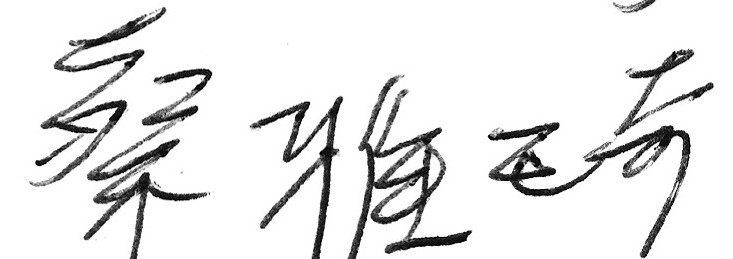 蔡雅琦